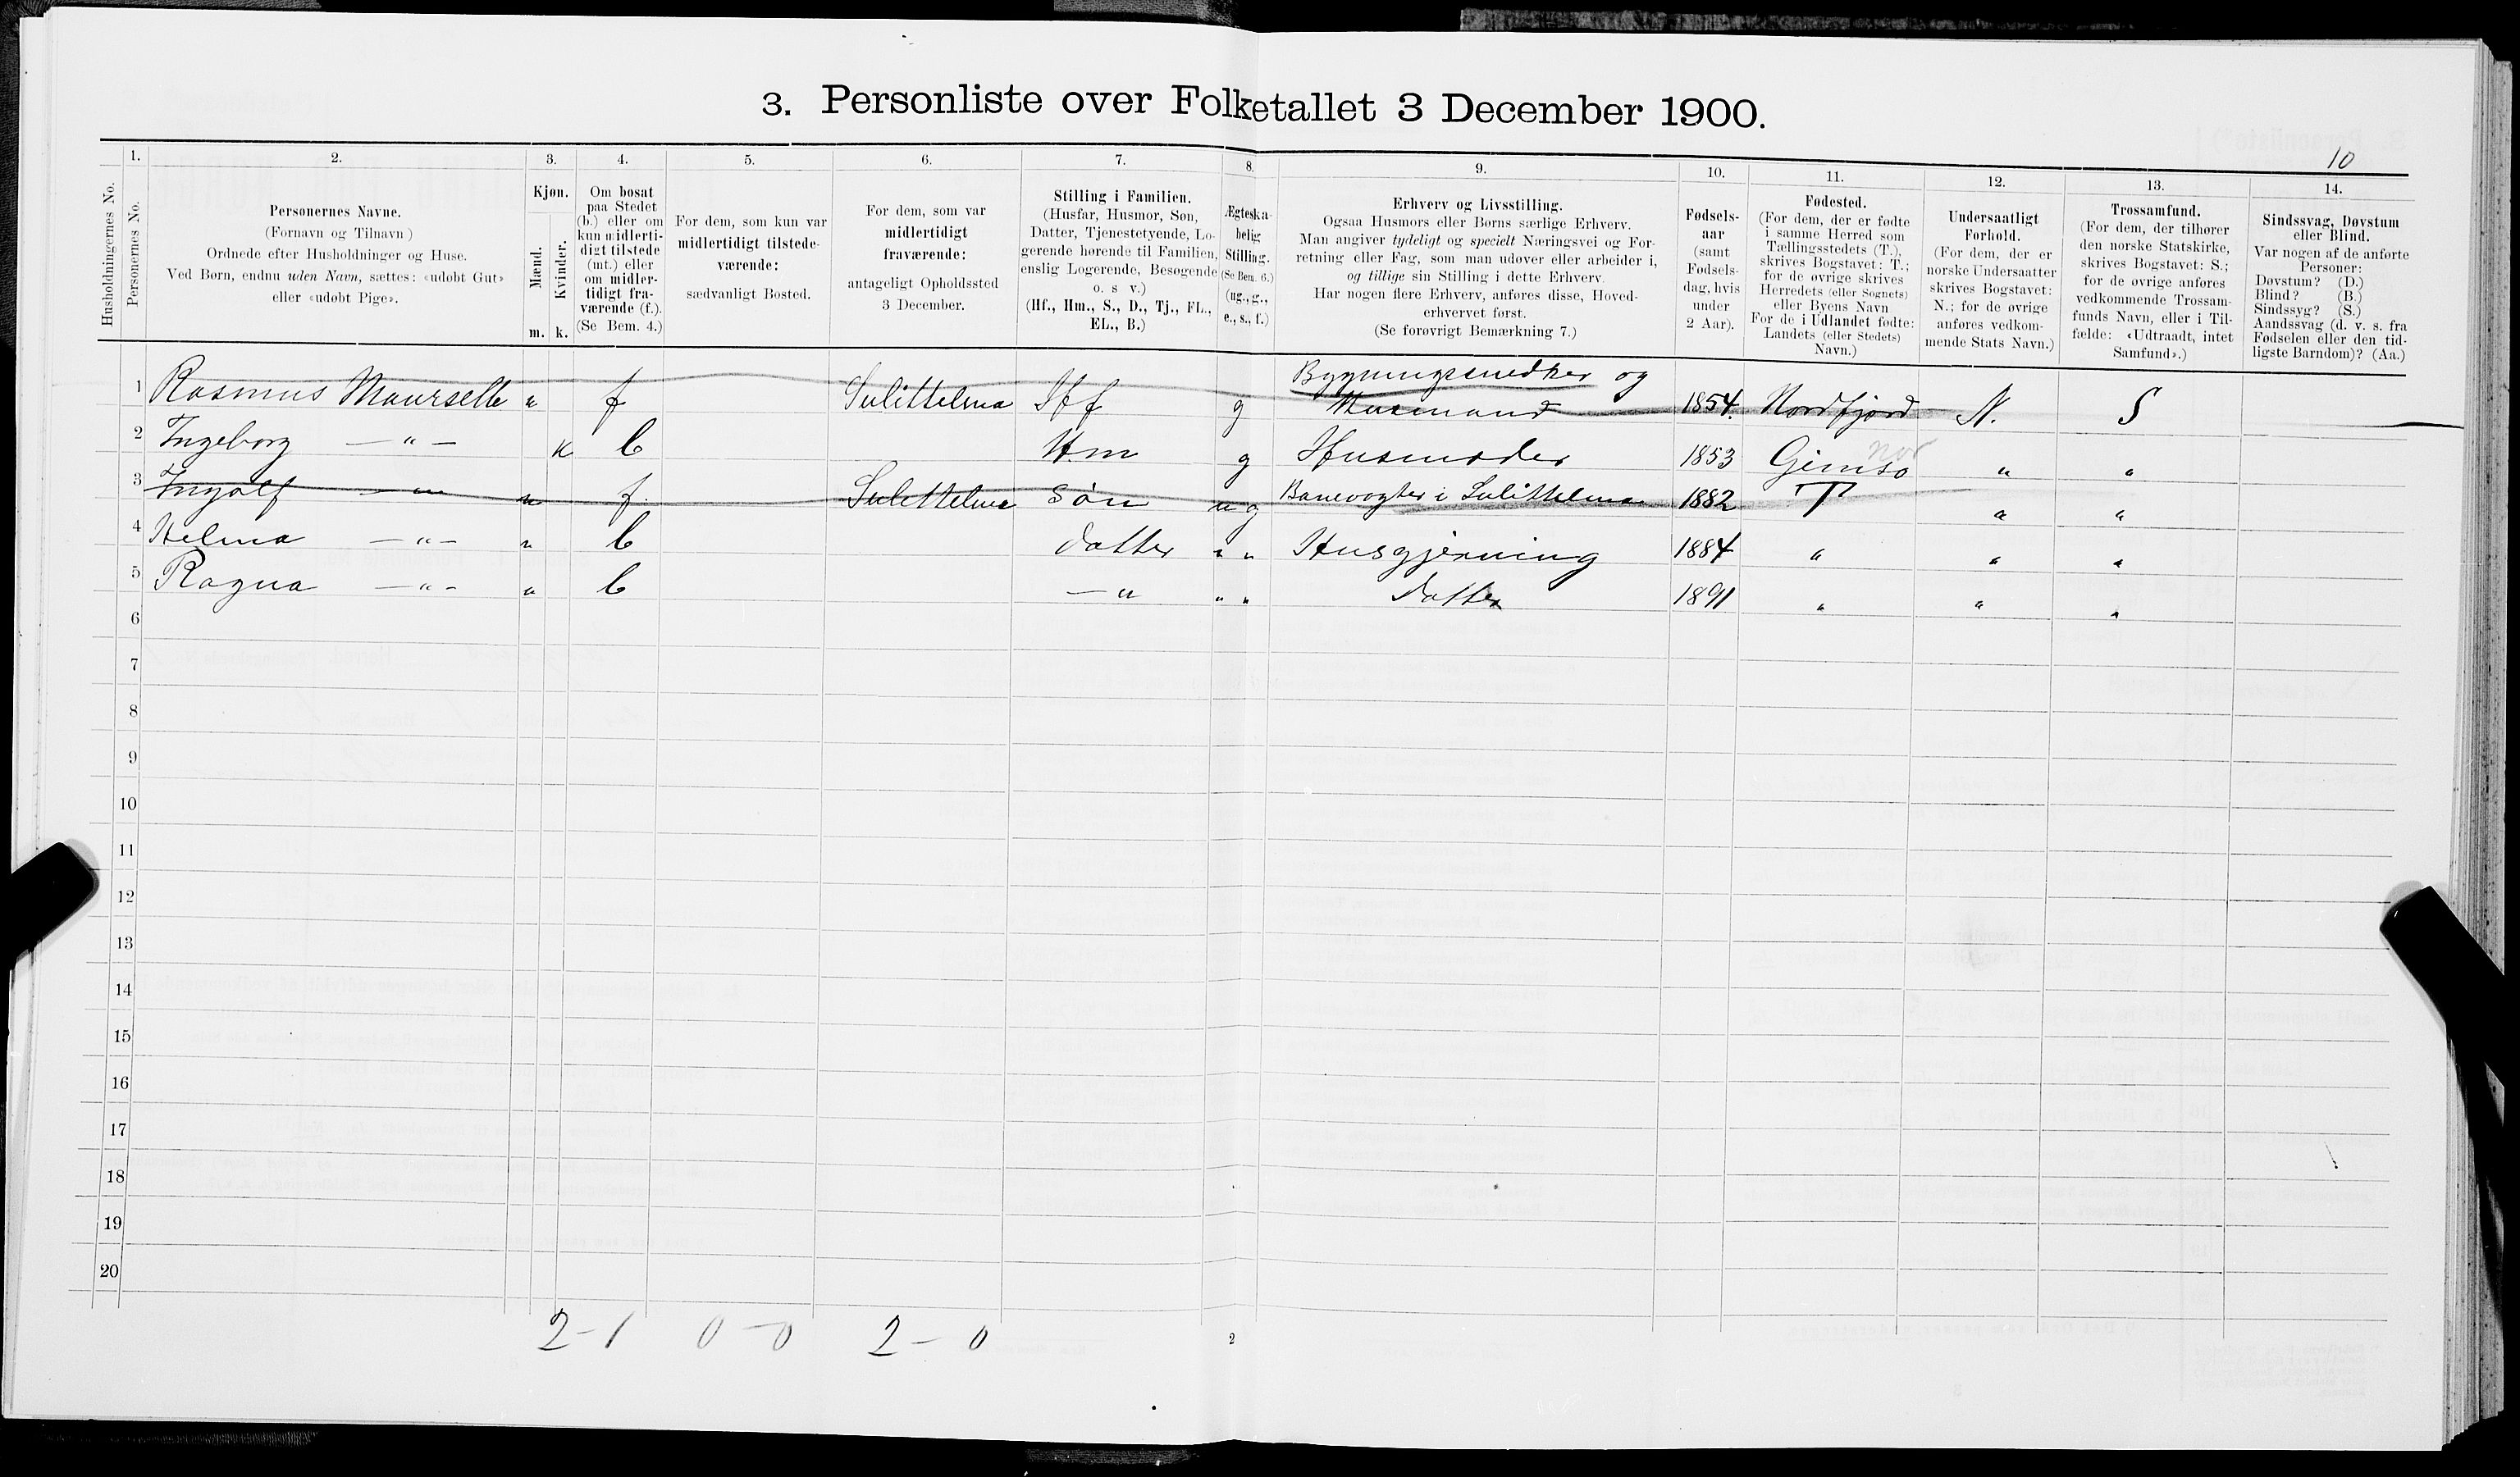 3. Personliste over Folketallet 3 December 1900.
10
1. 2. 3. 4. 5. 6. 7. 8. 9. 10. 11. 12. 13. 14.
Husholdningernes No.
Personernes No.
Personernes Navne.
(Fornavn og Tilnavn)
Ordnede efter Husholdninger og Huse.
Ved Børn, endnu uden Navn, sættes: «udøbt Gut»
eller «udøbt Pige».
Kjøn.
Mænd.
Kvinder.
m. k.
Om bosat
paa Stedet
(b.) eller om
kun midlerti-
digt tilstede
(mt.) eller
om midler-
tidigt fra-
værende (f.).
(Se Bem. 4.)
For dem, som kun var
midlertidigt tilstede-
værende:
sædvanligt Bosted.
For dem, som var
midlertidigt
fraværende:
antageligt Opholdssted
3 December.
Stilling i Familien.
(Husfar, Husmor, Søn,
Datter, Tjenestetyende, Lo-
gerende hørende til Familien,
enslig Logerende, Besøgende
o. s v.)
(Hf., Hm., S., D., Tj., FL.,
EL., B.)
Ægteska-
belig
Stilling.
(Se Bem. 6.)
(ug., g.,
e., s., f.)
Erhverv og Livsstilling.
Ogsaa Husmors eller Børns særlige Erhverv.
Man angiver tydeligt og specielt Næringsvei og For-
retning eller Fag, som man udøver eller arbeider i,
og tillige sin Stilling i dette Erhverv.
Har nogen flere Erhverv, anføres disse, Hoved-
erhvervet først.
(Se forøvrigt Bemærkning 7.)
Fødsels-
aar
(samt
Fødsels-
dag, hvis
under
2 Aar).
Fødested.
(For dem, der er fødte
i samme Herred som
Tællingsstedets (T.),
skrives Bogstavet: T.;
for de øvrige skrives
Herredets (eller Sognets)
eller Byens Navn
For de i Udlandet fødte:
Landets (eller Stedets)
Navn.)
Undersaatligt
Forhold.
(For dem, der er
norske Undersaatter
skrives Bogstavet:
N.; for de øvrige
anføres vedkom-
mende Stats Navn.)
Trossamfund.
(For dem, der tilhører
den norske Statskirke,
skrives Bogstavet: S.;
for de øvrige anføres
vedkommende Trossam-
funds Navn, eller i Til-
fælde: «Udtraadt, intet
Samfund».)
Sindssvag, Døvstum
eller Blind.
Var nogen af de anførte
Personer:
Døvstum? (D.)
Blind? (B.)
Sindssyg? (S.)
Aandssvag (d. v. s. fra
Fødselen eller den tid-
ligste Barndom)? (Aa.)
1 Rasmus Maurseth m f Sulittelma Hf g Bygningssnedker og
Husmand 1854. Nordfjord N. S
2 Ingeborg — " — k b Hm g Husmoder 1853 Gimsø " "
3 Ingolf — " — m f. Sulittelma Søn ug Banevogter i Sulittelma 1882 T " "
4 Helma — " — " b datter " " Husgjerning 1884 " " "
5 Ragna — " — " b — " " " datter 1891 " " "
6
7
8
9
10
11
12
13
14
15
16
17
18
19
20
2-1 0-0 2-0
2